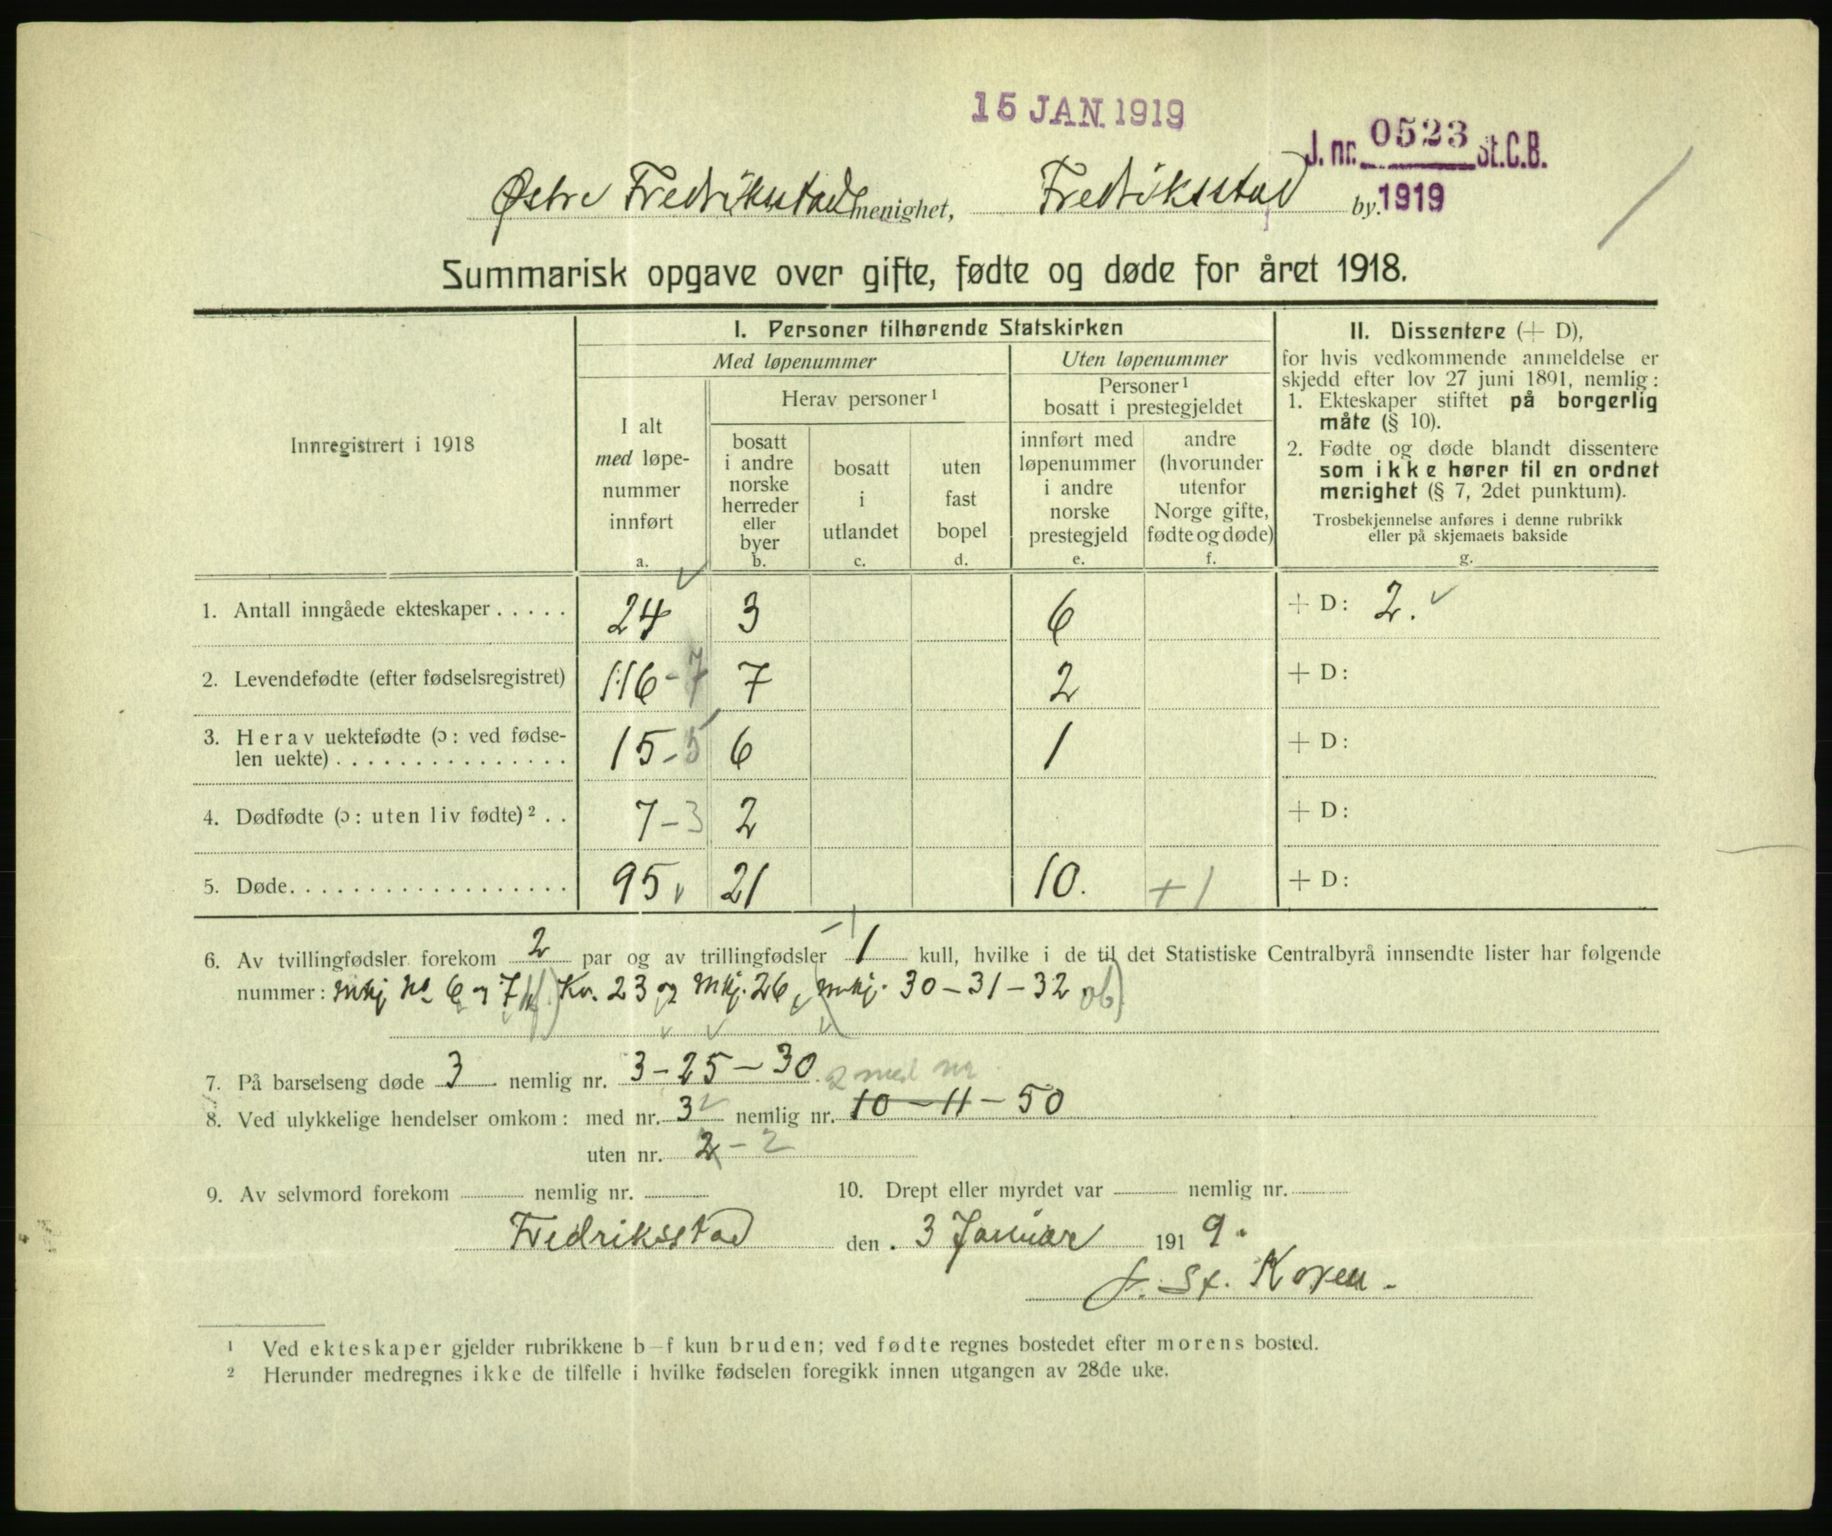 15 JAN. 1919
J. nr. 0523 St.C.B.
Østre Fredriksstad menighet, Fredriksstad by. 1919
Summarisk opgave over gifte, fødte og døde for året 1918.
Innregistrert i 1918
I. Personer tilhørende Statskirken
Med løpenummer
Uten løpenummer
I alt
med løpe-
nummer
innført
a.
Herav personer ¹
bosatt
i andre
norske
herreder
eller
byer
b.
bosatt
i
utlandet
c.
uten
fast
bopel
d.
Personer ¹
bosatt i prestegjeldet
innført med
løpenummer
i andre
norske
prestegjeld
e.
andre
(hvorunder
utenfor
Norge gifte,
fødte og døde)
f.
II. Dissentere (+ D),
for hvis vedkommende anmeldelse er
skjedd efter lov 27 juni 1891, nemlig:
1. Ekteskaper stiftet på borgerlig
måte (§ 10).
2. Fødte og døde blandt dissentere
som ikke hører til en ordnet
menighet (§ 7, 2det punktum).
Trosbekjennelse anføres i denne rubrikk
eller på skjemaets bakside
g.
1. Antall inngåede ekteskaper . . . . . 24 3 6 + D: 2.
2. Levendefødte (efter fødselsregistret) 116 - 7 7 2 + D:
3. Herav uektefødte (ɔ: ved fødse-
len uekte) . . . . . . . . . . . . . . . 15 - 5 6 1 + D:
4. Dødfødte (ɔ: uten liv fødte) ² . . 7 - 3 2 + D:
5. Døde. . . . . . . . . . . . . . . . . . 95 21 10. + 1 + D:
6. Av tvillingfødsler forekom 2 par og av trillingfødsler 1 kull, hvilke i de til det Statistiske Centralbyrå innsendte lister har følgende
nummer: Mkj No 6 og 7 Kv. 23 og Mkj. 26, Mkj. 30 - 31 - 32
7. På barselseng døde 3 nemlig nr. 3 - 25 - 30. 2 med nr
8. Ved ulykkelige hendelser omkom: med nr. 3 nemlig nr. 10 - 11 - 50
uten nr. 2 - 2
9. Av selvmord forekom nemlig nr. 10. Drept eller myrdet var nemlig nr.
Fredriksstad den 3 Januar 1919.
J. St. Koren.
¹ Ved ekteskaper gjelder rubrikkene b–f kun bruden; ved fødte regnes bostedet efter morens bosted.
² Herunder medregnes ikke de tilfelle i hvilke fødselen foregikk innen utgangen av 28de uke.